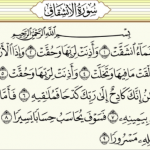 سُورَةُ الِانْشِقَاقِ
بِسْمِ اللَّهِ الرَّحْمَٰنِ الرَّحِيمِ
السَّمَاءُ انشَقَّتْ ١ وَأَذِنَتْ لِرَبِّهَا وَحُقَّتْ ٢ وَإِذَا
وَأَلْقَتْ مَا فِيهَا وَتَخَلَّتْ ٤ وَأَذِنَتْ لِرَبِّهَا وَحُقَّتْ ٥
إِنَّكَ كَادِحٌ إِلَىٰ رَبِّكَ كَدْحًا فَمُلَاقِيهِ ٦
بِيَمِينِهِ ٧ فَسَوْفَ يُحَاسَبُ حِسَابًا يَسِيرًا ٨
مَسْرُورًا ٩